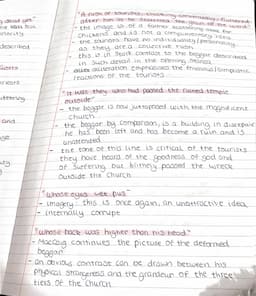 "A rush of tourists, clucking contentedly, fluttered
after him as he scattered the grain of the word"
- the image is of a farmer scattering seed for
chickens and is not a complimentary image
- the tourists have no individuality/personality
as they are a collective noun
- this is in stark contrast to the beggar described
in such detail in the opening stanza
- alliteration emphasises the
reactions of the tourists
"It was they who had passed the ruined temple
outside"
- the beggar is now juxtaposed with the magnificent
church
- the beggar, by comparison, is a building in disrepair
he has been left and has become a ruin and is
unattended
- the tone of this line is critical of the tourists
they have heard of the goodness of god and
of suffering but blithely passed the wreck
outside the church
"whose eyes wept pus"
- imagery: this is, once again, an unattractive idea
- internally corrupt
"Whose back was higher than his head"
- MacCaig continues the picture of the deformed
beggar
- an obvious contrast can be drawn between his
physical strangeness and the grandeur of the three
tiers of the church
described
uttering
and